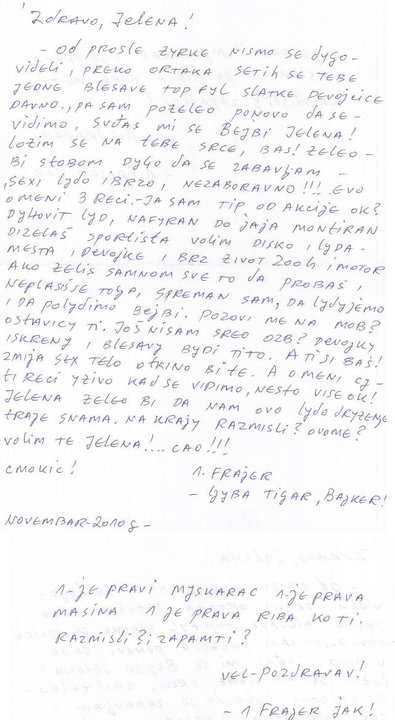 Zdravo, Jelena!
- OD PROSLE ZYRKE NISMO SE DYGO-
VIDELI, PREKO ORTAKA SETIH SE TEBE
JEDNE BLESAVE TOP FYL SLATKE DEVOJCICE
DAVNO., PA SAM POZELEO PONOVO DA SE-
VIDIMO, SVĐAS MI SE BEJBI JELENA!
LOZIM SE NA TEBE SRCE, BAS! ZELEO-
BI STOBOM DYGO DA SE ZABAVLJAM-
,SEXI, LYDO I BRZO, NEZABORAVNO!!! EVO
O MENI 3 RECI.- JA SAM TIP OD AKCIJE OK?
DYHOVIT LYD, NAFYRAN DO JAJA MONTIRAN
DIZELAS SPORTISTA VOLIM DISKO, LYDA-
MESTA, DEVOJKE I BRZ ZIVOT 200h I MOTOR
AKO ZELIS SAMNOM SVE TO DA PROBAS,
NEPLASISE TOGA, SPREMAN SAM, DA LYDYJEMO
I DA POLYDIMO BEJBI. POZOVI ME NA MOB?
OSTAVICY TI. JOS NISAM SREO OZB? DEVOJKY
ISKRENY I BLESAVY BYDI TI TO. A TI SI BAS!
ZMIJA SEX TELO OTKINO BI TE. A O MENI CY-
TI RECI YZIVO KAD SE VIDIMO, NESTO VISE OK!
JELENA ZELEO BI DA NAM OVO LYDO DRYZENJE
TRAJE SNAMA. NA KRAJY RAZMISLI? OVOME?
VOLIM TE JELENA!... CAO!!!
CMOKIC!
1. FRAJER
- LJYBA TIGAR, BAJKER!
NOVEMBAR-2010g-
1-JE PRAVI MYSKARAC 1-JE PRAVA
MASINA 1 JE PRAVA RIBA KO TI.
RAZMISLI? I ZAPAMTI?
VEL-POZDRAVAV!
- 1 FRAJER JAK!